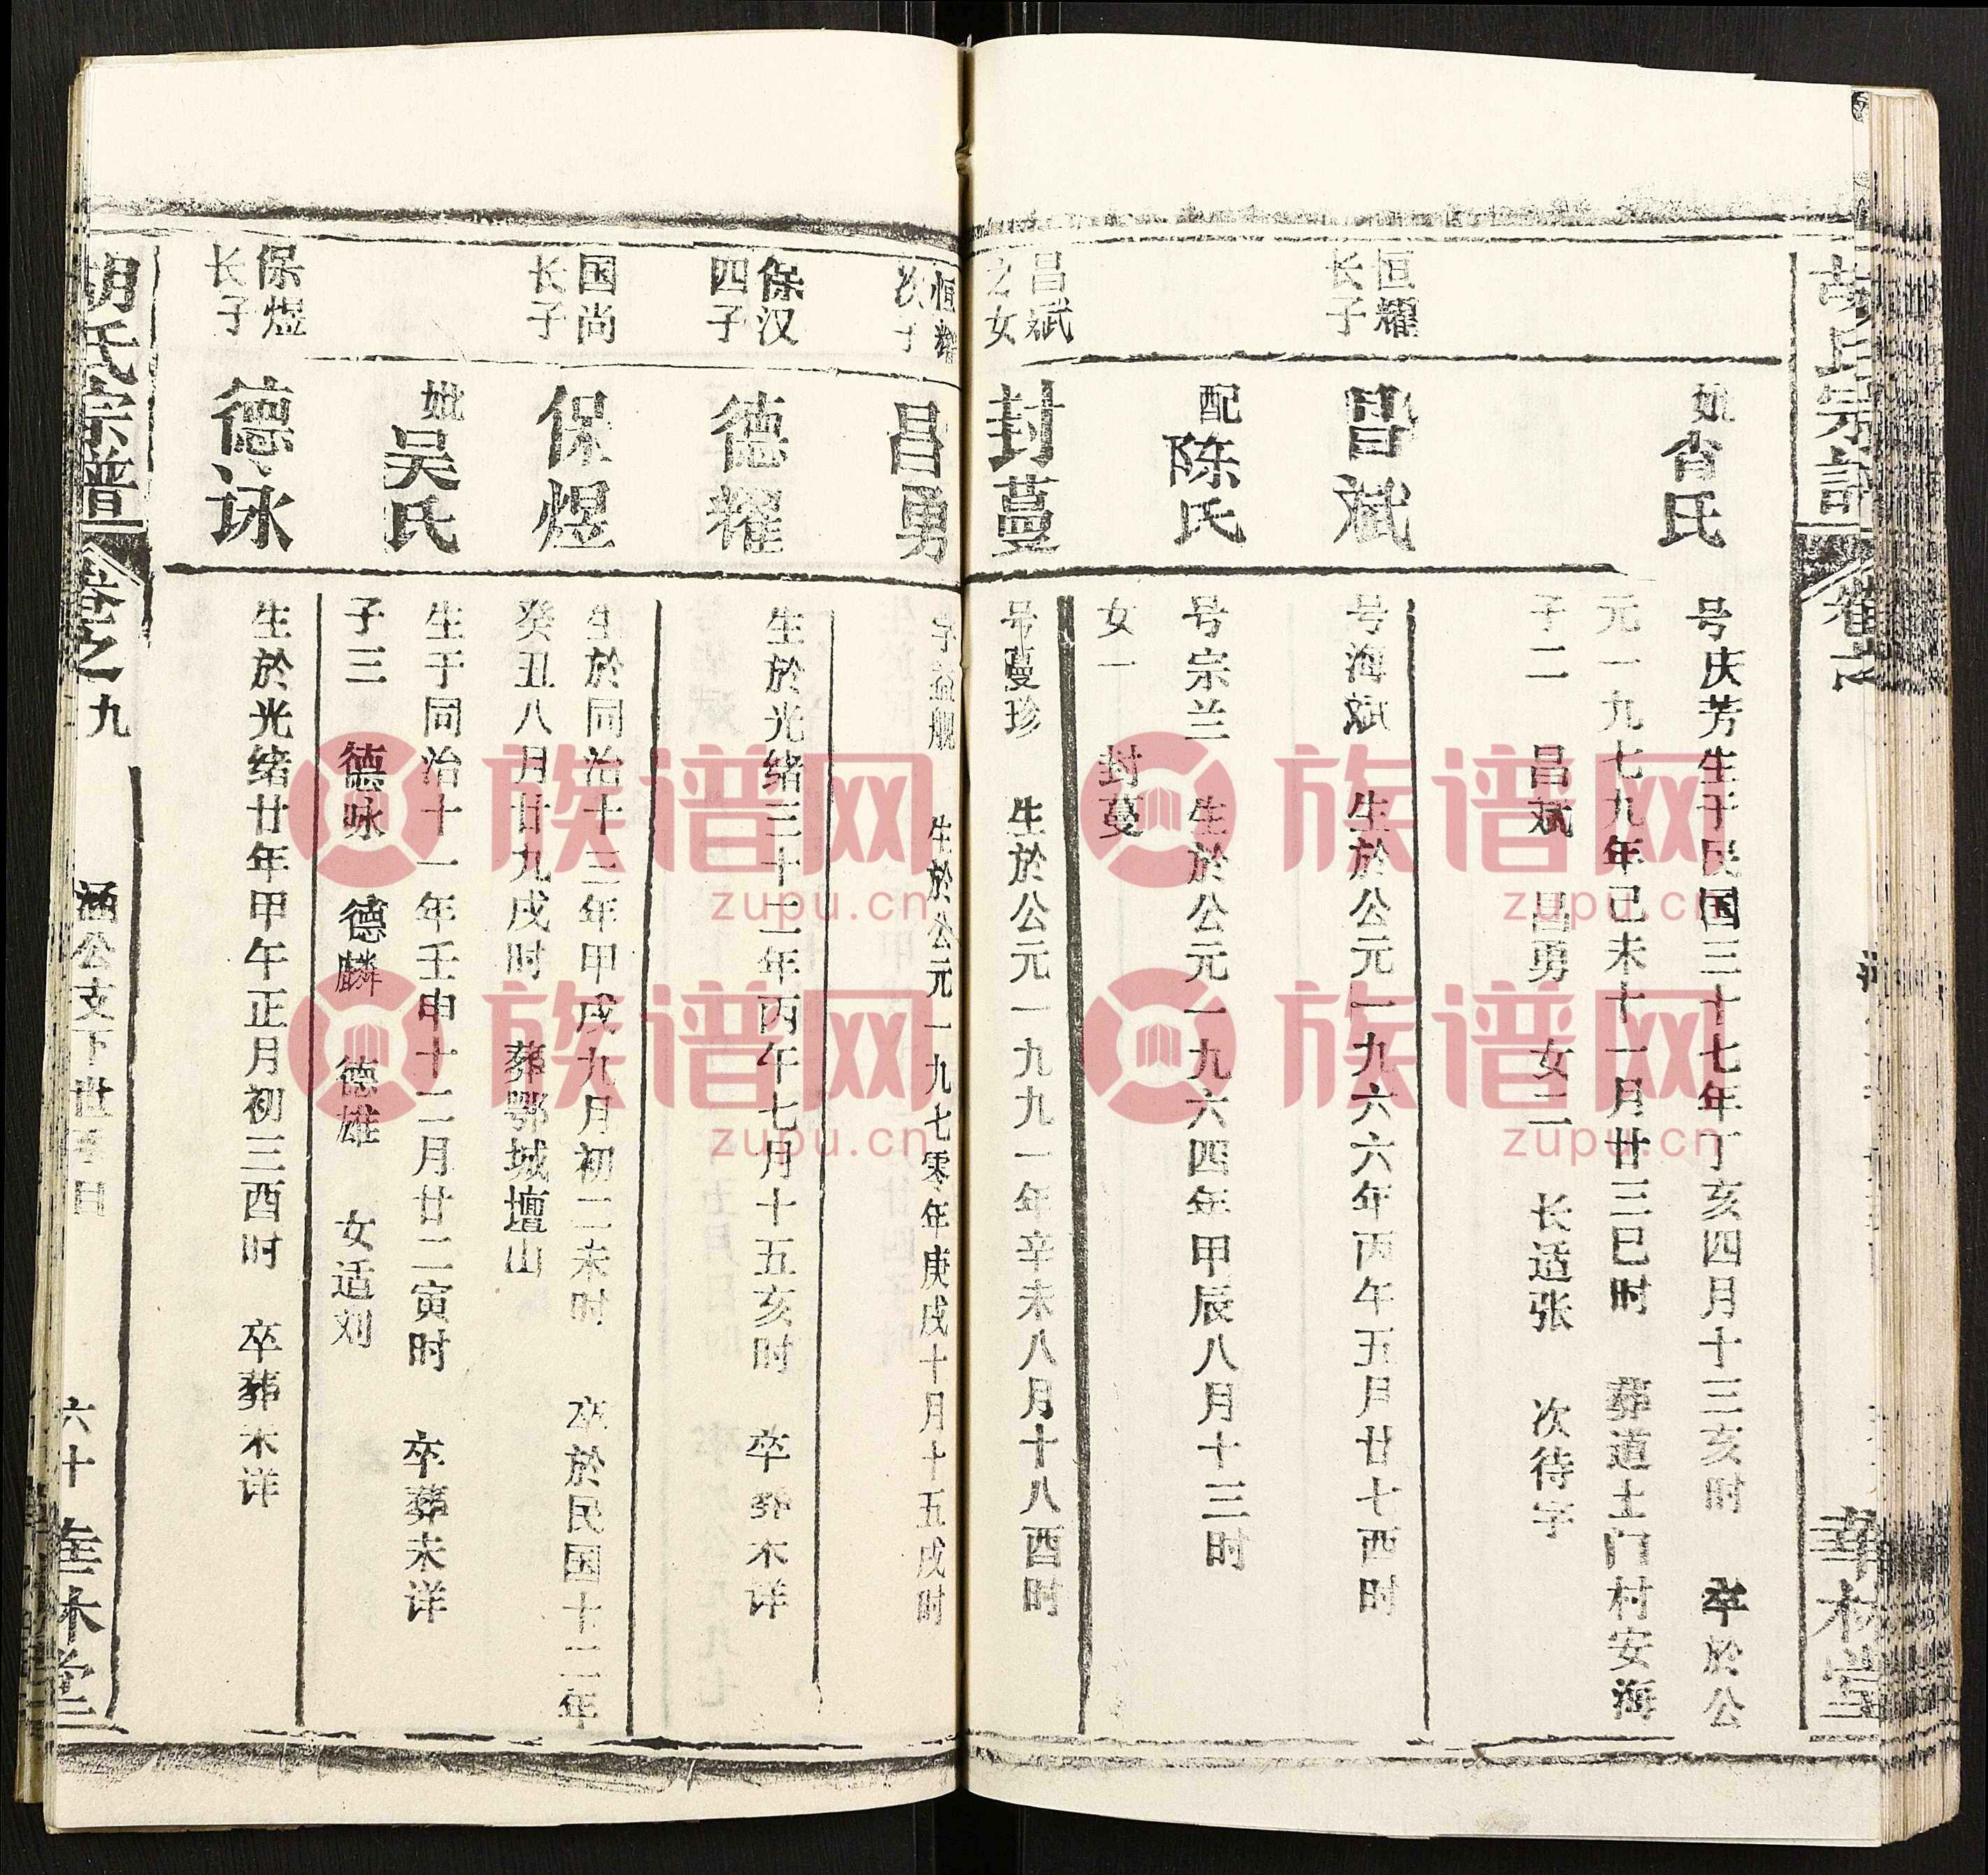 胡氏宗谱
卷之
华林堂
妣肖氏
号庆芳生于民国三十七年丁亥四月十三亥时 卒於公
元一九七九年己未十一月廿三巳时 葬道土门村安海
子二 昌斌 昌勇 女二 长适张 次待字
恒耀
长子
昌斌
号海斌 生於公元一九六六年丙午五月廿七酉时
配陈氏
号宗兰 生於公元一九六四年甲辰八月十三时
女一 封蔓
昌斌
之女
封蔓
号蔓珍 生於公元一九九一年辛未八月十八酉时
恒耀
次子
昌勇
生於公元一九七零年庚戌十月十五戌时
保汉
四子
德耀
生於光绪三十二年丙午七月十五亥时 卒葬未详
国尚
长子
保煜
生於同治十三年甲戌九月初二未时 卒於民国十二年
癸丑八月廿九戌时 葬鄂城壇山
妣吴氏
生于同治十一年壬申十二月廿二寅时 卒葬未详
子三 德咏 德麟 德雄 女适刘
保煜
长子
德咏
生於光绪廿年甲午正月初三酉时 卒葬未详
胡氏宗谱
卷之九
涵公支下世系
六十
华林堂
族谱网
zupu.cn
族谱网
zupu.cn
族谱网
zupu.cn
族谱网
zupu.cn